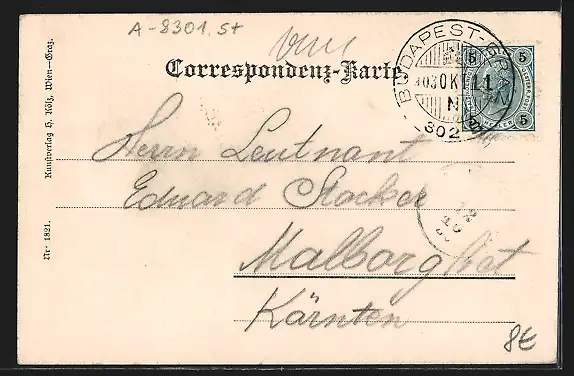 A-8301.St
Correspondenz-Karte
BUDAPEST-GRAZ
903 OKT 11
N
302
5 5
5 5
Herrn Leutnant
Eduard Stocker
Malborghet
Kärnten
8€
Kunstverlag H. Kölz, Wien-Graz.
Nr. 1821.